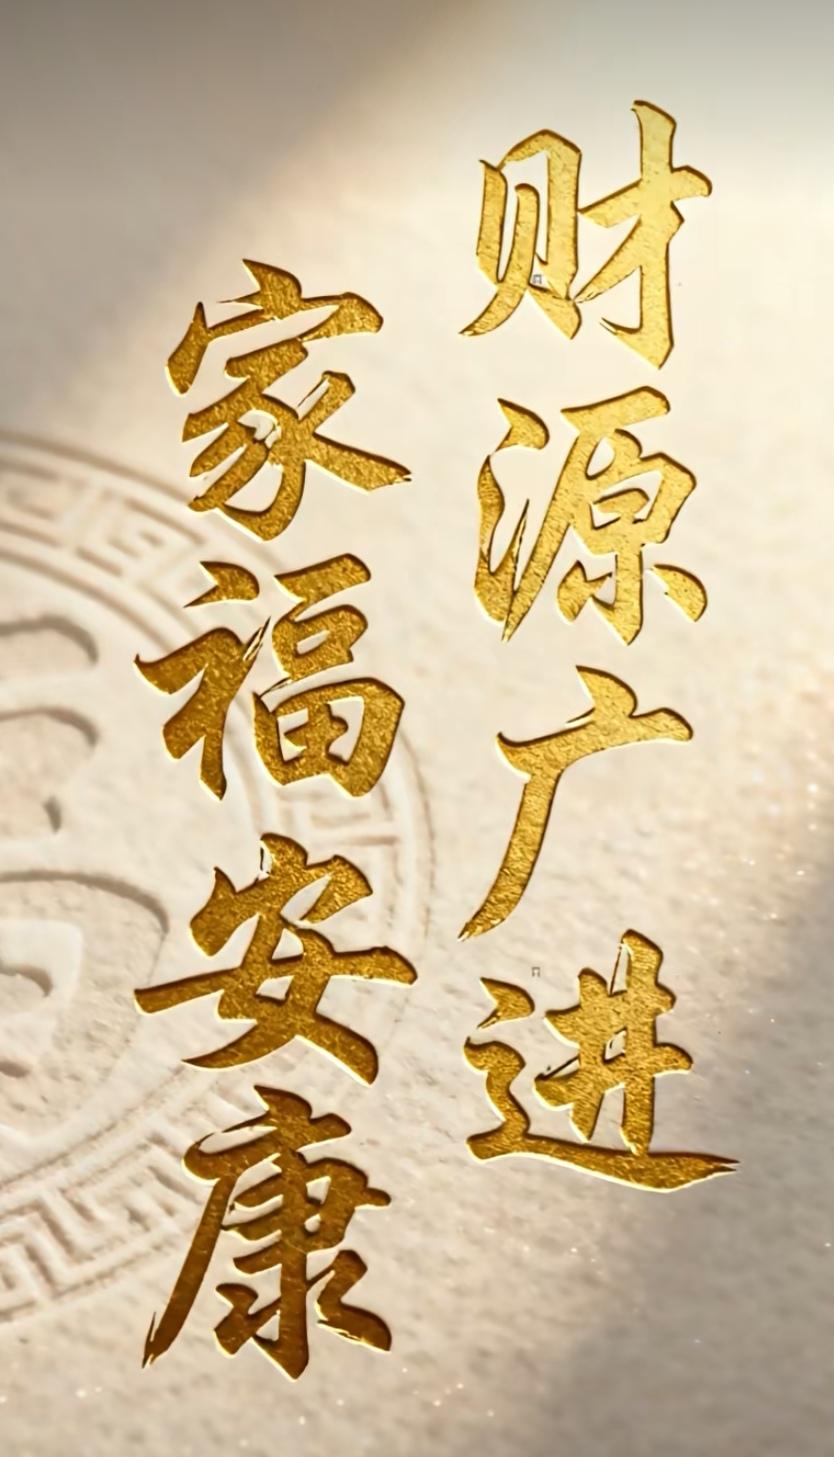 财源广进
家福安康